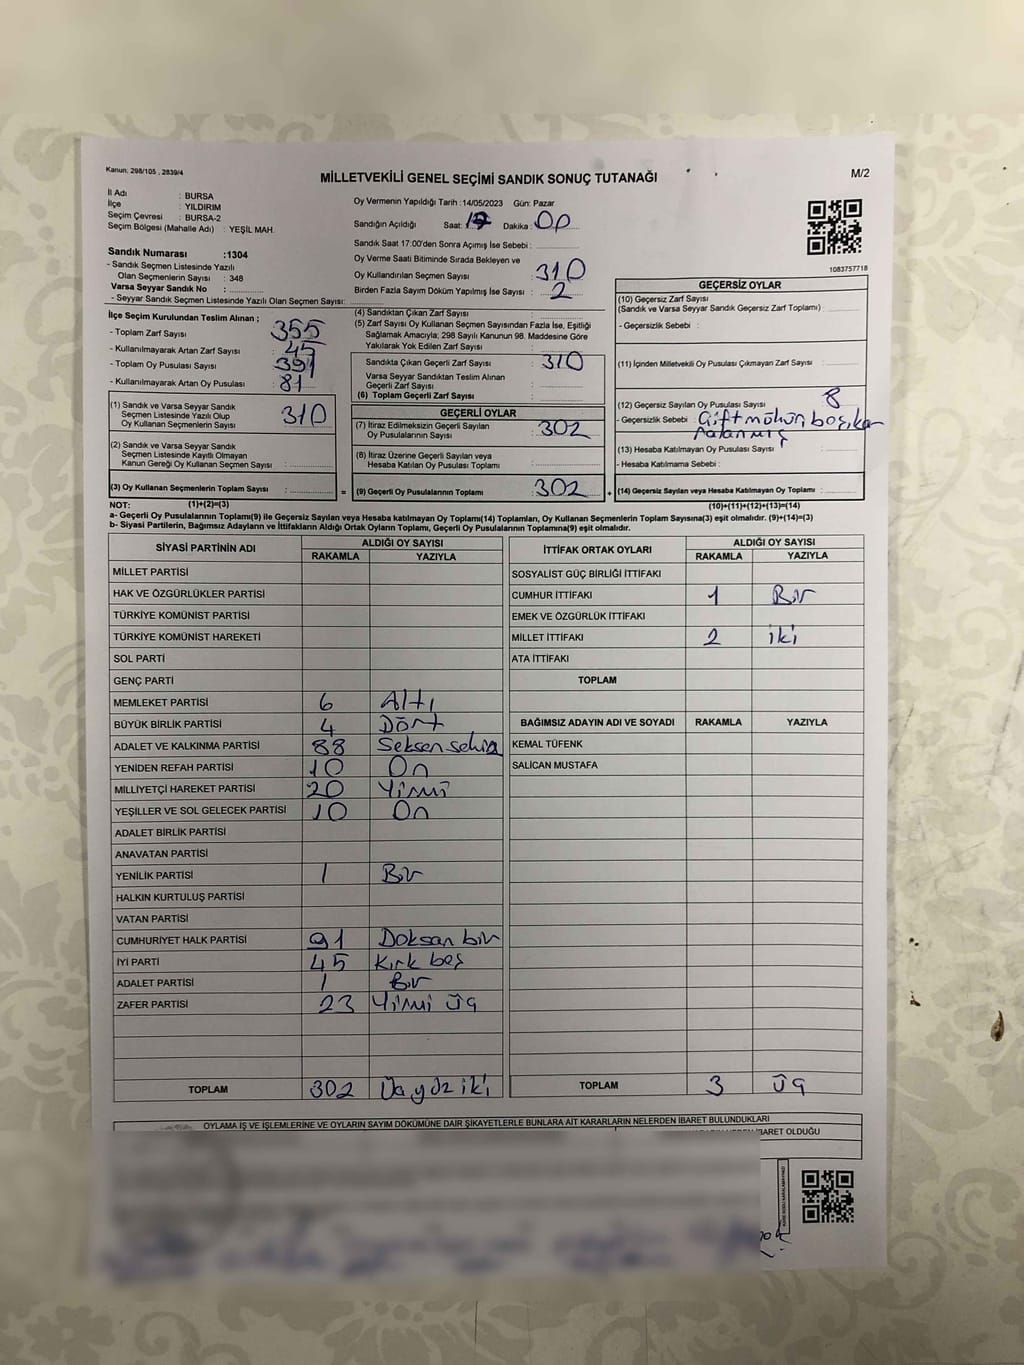 Kanun. 298/105 , 2839/4
MİLLETVEKİLİ GENEL SEÇİMİ SANDIK SONUÇ TUTANAĞI
M/2
İl Adı : BURSA
İlçe : YILDIRIM
Seçim Çevresi : BURSA-2
Seçim Bölgesi (Mahalle Adı) : YEŞİL MAH.
Sandık Numarası :1304
- Sandık Seçmen Listesinde Yazılı
Olan Seçmenlerin Sayısı : 348
Varsa Seyyar Sandık No :
- Seyyar Sandık Seçmen Listesinde Yazılı Olan Seçmen Sayısı:
Oy Vermenin Yapıldığı Tarih : 14/05/2023 Gün: Pazar
Sandığın Açıldığı Saat: 17 Dakika :
Sandık Saat 17:00'den Sonra Açımış İse Sebebi :
Oy Verme Saati Bitiminde Sırada Bekleyen ve
Oy Kullandırılan Seçmen Sayısı : 310
Birden Fazla Sayım Döküm Yapılmış İse Sayısı : 2
1083757718
İlçe Seçim Kurulundan Teslim Alınan ;
- Toplam Zarf Sayısı : 355
- Kullanılmayarak Artan Zarf Sayısı : 45
- Toplam Oy Pusulası Sayısı : 391
- Kullanılmayarak Artan Oy Pusulası : 81
(1) Sandık ve Varsa Seyyar Sandık
Seçmen Listesinde Yazılı Olup
Oy Kullanan Seçmenlerin Sayısı : 310
(2) Sandık ve Varsa Seyyar Sandık
Seçmen Listesinde Kayıtlı Olmayan
Kanun Gereği Oy Kullanan Seçmen Sayısı :
(3) Oy Kullanan Seçmenlerin Toplam Sayısı :
(4) Sandıktan Çıkan Zarf Sayısı :
(5) Zarf Sayısı Oy Kullanan Seçmen Sayısından Fazla İse, Eşitliği
Sağlamak Amacıyla; 298 Sayılı Kanunun 98. Maddesine Göre
Yakılarak Yok Edilen Zarf Sayısı :
Sandıkta Çıkan Geçerli Zarf Sayısı : 310
Varsa Seyyar Sandıktan Teslim Alınan
Geçerli Zarf Sayısı :
(6) Toplam Geçerli Zarf Sayısı :
GEÇERLİ OYLAR
(7) İtiraz Edilmeksizin Geçerli Sayılan
Oy Pusulalarının Sayısı : 302
(8) İtiraz Üzerine Geçerli Sayılan veya
Hesaba Katılan Oy Pusulası Toplamı :
= (9) Geçerli Oy Pusulalarının Toplamı : 302 +
GEÇERSİZ OYLAR
(10) Geçersiz Zarf Sayısı
(Sandık ve Varsa Seyyar Sandık Geçersiz Zarf Toplamı) :
- Geçersizlik Sebebi :
(11) İçinden Milletvekili Oy Pusulası Çıkmayan Zarf Sayısı :
(12) Geçersiz Sayılan Oy Pusulası Sayısı : 8
- Geçersizlik Sebebi : Çift mühür, boş, kar
(13) Hesaba Katılmayan Oy Pusulası Sayısı :
- Hesaba Katılmama Sebebi :
(14) Geçersiz Sayılan veya Hesaba Katılmayan Oy Pusulası Toplamı :
NOT: (1)+(2)=(3)
(10)+(11)+(12)+(13)=(14)
a- Geçerli Oy Pusulalarının Toplamı(9) ile Geçersiz Sayılan veya Hesaba katılmayan Oy Toplamı(14) Toplamları, Oy Kullanan Seçmenlerin Toplam Sayısına(3) eşit olmalıdır. (9)+(14)=(3)
b- Siyasi Partilerin, Bağımsız Adayların ve İttifakların Aldığı Ortak Oyların Toplamı, Geçerli Oy Pusulalarının Toplamına(9) eşit olmalıdır.
SİYASİ PARTİNİN ADI ALDIĞI OY SAYISI
RAKAMLA YAZIYLA
MİLLET PARTİSİ
HAK VE ÖZGÜRLÜKLER PARTİSİ
TÜRKİYE KOMÜNİST PARTİSİ
TÜRKİYE KOMÜNİST HAREKETİ
SOL PARTİ
GENÇ PARTİ
MEMLEKET PARTİSİ 6 Altı
BÜYÜK BİRLİK PARTİSİ 4 Dört
ADALET VE KALKINMA PARTİSİ 88 Seksen sekiz
YENİDEN REFAH PARTİSİ 10 On
MİLLİYETÇİ HAREKET PARTİSİ 20 Yirmi
YEŞİLLER VE SOL GELECEK PARTİSİ 10 On
ADALET BİRLİK PARTİSİ
ANAVATAN PARTİSİ
YENİLİK PARTİSİ 1 Bir
HALKIN KURTULUŞ PARTİSİ
VATAN PARTİSİ
CUMHURİYET HALK PARTİSİ 91 Doksan bir
İYİ PARTİ 45 Kırk beş
ADALET PARTİSİ 1 Bir
ZAFER PARTİSİ 23 Yirmi üç
TOPLAM 302 Üç yüz iki
İTTİFAK ORTAK OYLARI ALDIĞI OY SAYISI
RAKAMLA YAZIYLA
SOSYALİST GÜÇ BİRLİĞİ İTTİFAKI
CUMHUR İTTİFAKI 1 Bir
EMEK VE ÖZGÜRLÜK İTTİFAKI
MİLLET İTTİFAKI 2 iki
ATA İTTİFAKI
TOPLAM
BAĞIMSIZ ADAYIN ADI VE SOYADI RAKAMLA YAZIYLA
KEMAL TÜFENK
SALİCAN MUSTAFA
TOPLAM 3 üç
OYLAMA İŞ VE İŞLEMLERİNE VE OYLARIN SAYIM DÖKÜMÜNE DAİR ŞİKAYETLERLE BUNLARA AİT KARARLARIN NELERDEN İBARET BULUNDUKLARI
İBARET OLDUĞU